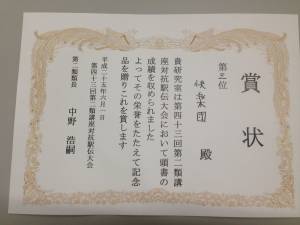 賞状
第三位
殿
貴研究室は第四十三回第二類講
座対抗駅伝大会において頭書の
成績を収められました
よってその栄誉をたたえて記念
品を贈りこれを賞します
平成二十五年六月一日
第四十三回第二類講座対抗駅伝大会
第二類長 中野 浩嗣